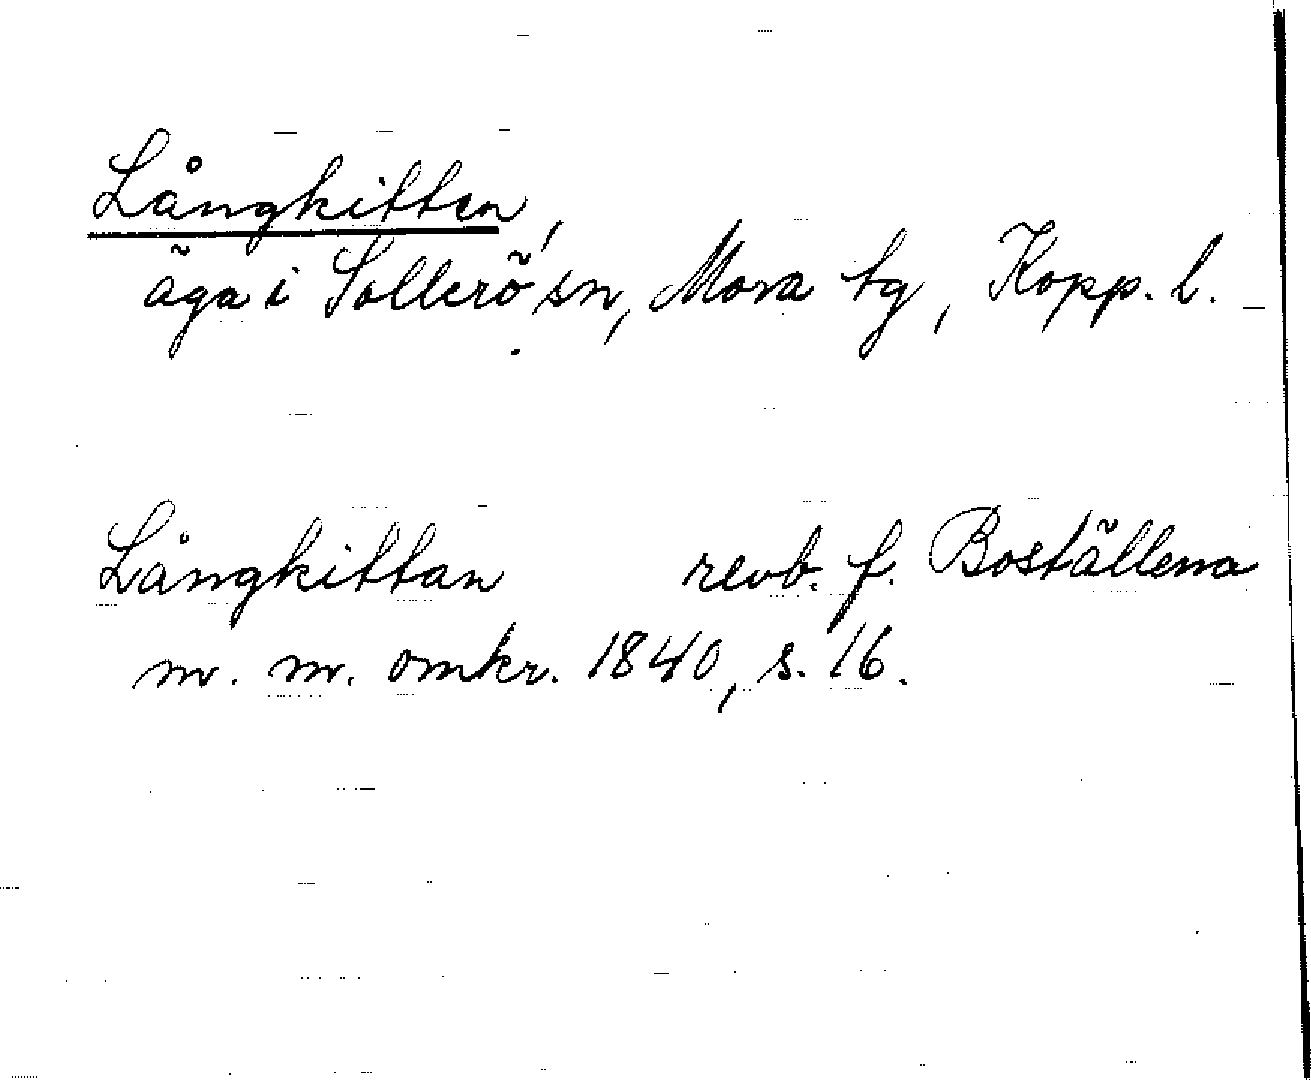 Långkitten,
äga i Sollerö sn, Mora tg, Kopp. l.
Långkittan revb. f. Boställena
m. m. omkr. 1840, s. 16.